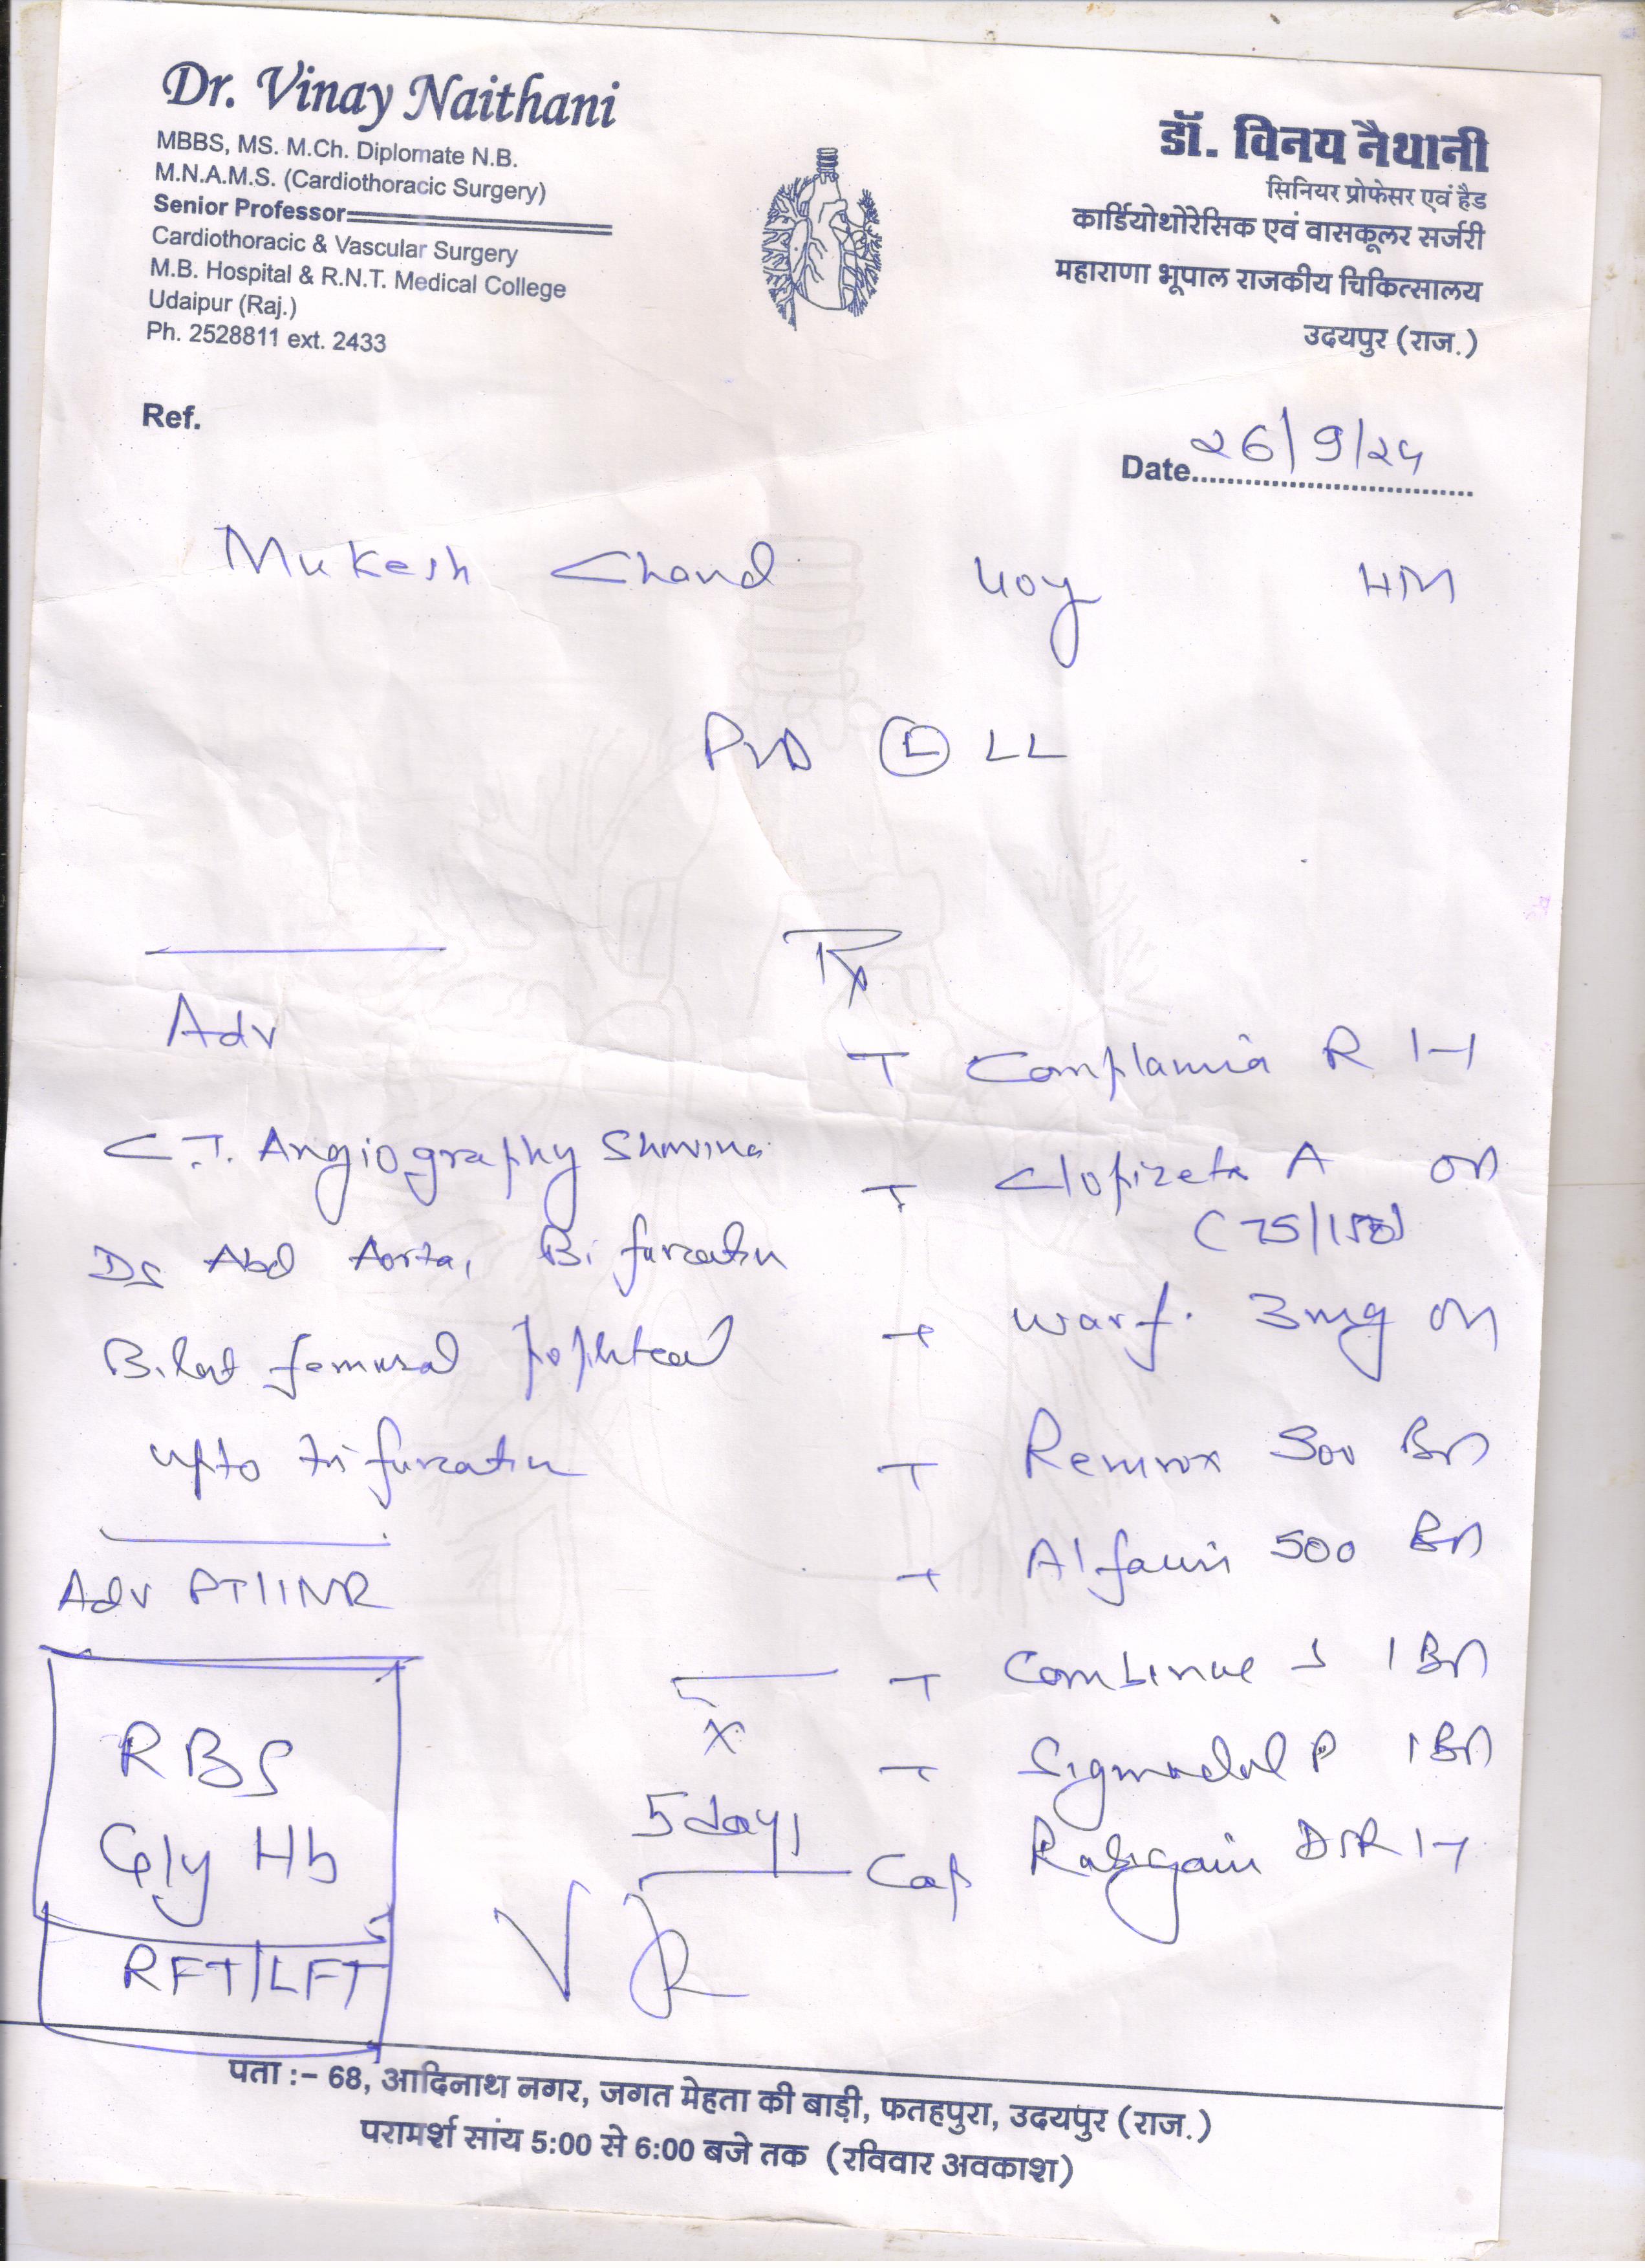 Dr. Vinay Naithani
MBBS, MS. M.Ch. Diplomate N.B.
M.N.A.M.S. (Cardiothoracic Surgery)
Senior Professor
Cardiothoracic & Vascular Surgery
M.B. Hospital & R.N.T. Medical College
Udaipur (Raj.)
Ph. 2528811 ext. 2433
डॉ. विनय नैथानी
सिनियर प्रोफेसर एवं हैड
कार्डियोथोरेसिक एवं वासकूलर सर्जरी
महाराणा भूपाल राजकीय चिकित्सालय
उदयपुर (राज.)
Ref.
Date 26/9/24
Mukesh Chand 40y HM
PVD Ⓛ LL
Rx
Adv
C.T. Angiography Showing
Ds Abd Aorta, Bifurcatin
Bilat femural popliteal
upto trifurcatin
Adv PT/INR
RBS
Gly Hb
RFT/LFT
T Complamia R 1-1
T Clopizeta A OD
(75/150)
T Warf. 3mg OD
T 500 BD
T 500 BD
T 1 BD
T P 1 BD
Cap DSR 1-1
x
5 days
पता :- 68, आदिनाथ नगर, जगत मेहता की बाड़ी, फतहपुरा, उदयपुर (राज.)
परामर्श सांय 5:00 से 6:00 बजे तक (रविवार अवकाश)